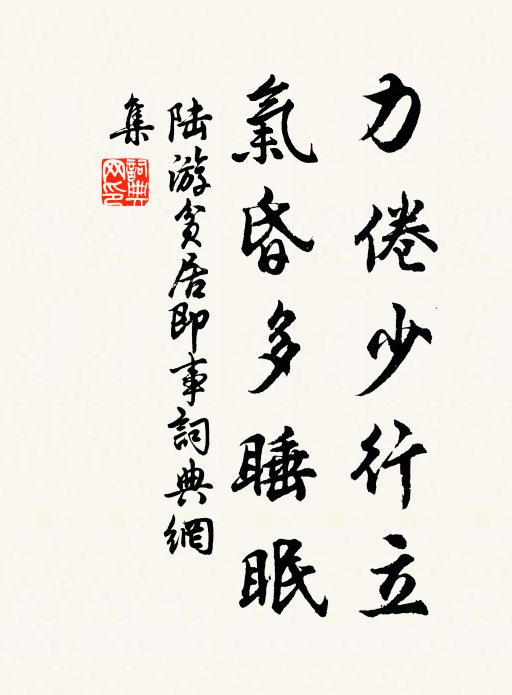 力倦少行立
氣昏多睡眠
陸游貧居即事詞典網
集
詞典
网印